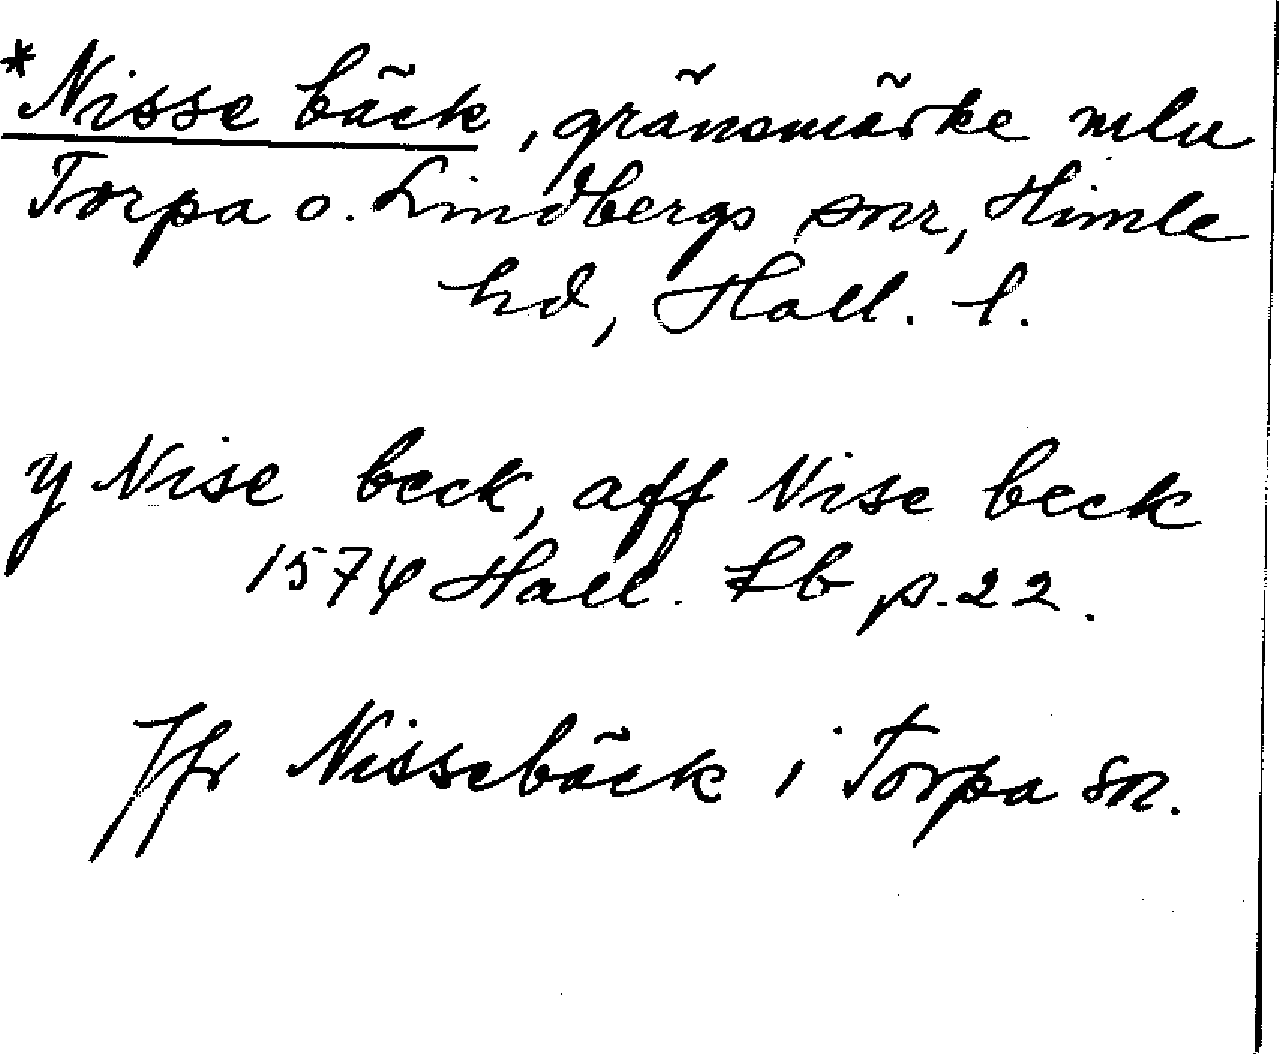 *Nisse bäck, gränsmärke mlu
Torpa o. Lindbergs snr, Himle
hd, Hall. l.
y Nise beck, aff Nise beck
1574 Hall. Lb p. 22.
Jfr Nissebäck i Torpa sn.